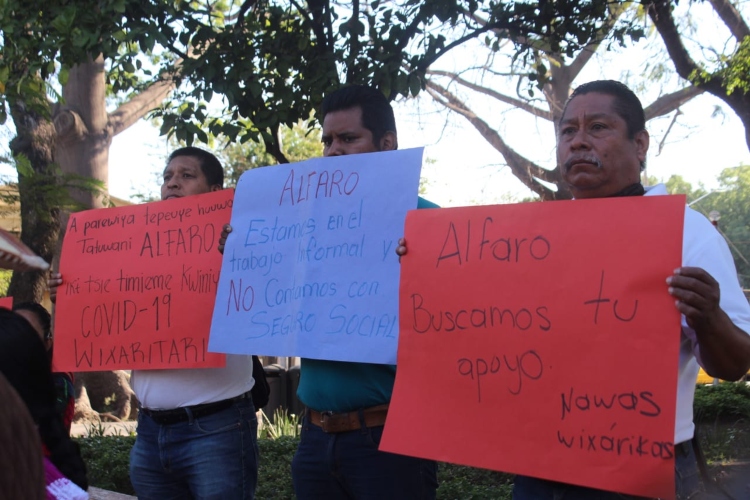 A parewiya tepeuye huuwa
Tatuwani ALFARO
KE tsie timieme Kwiniy
COVID-19
WIXARITARI
ALFARO
Estamos en el
trabajo Informal y
NO Contamos con
SEGURO SOCIAL
Alfaro
Buscamos tu
apoyo.
Nawas
wixárikas